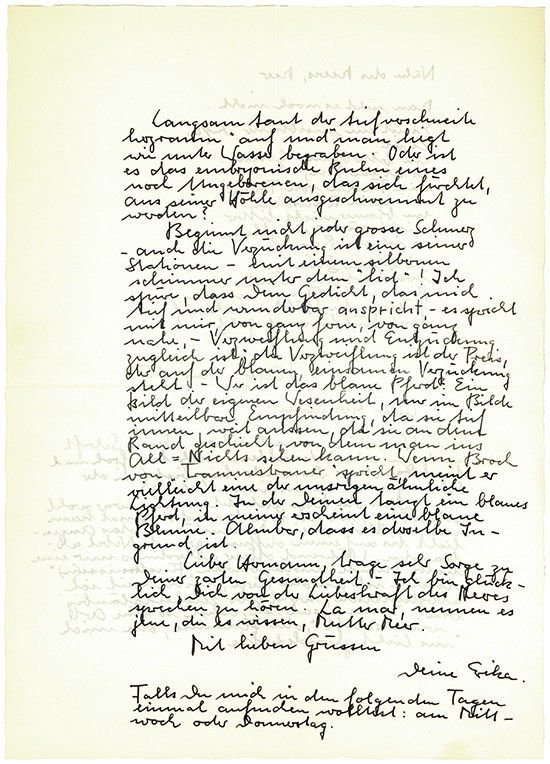 Langsam taut der tiefverschneite
"auf und" man liegt
wie unter Wasser begraben. Oder ist
es das embryonische Ruhn eines
noch Ungeborenen, das sich fürchtet,
aus seiner Höhle ausgeschwemmt zu
werden?
Beginnt nicht jeder grosse Schmerz
- auch die Verzückung ist eine seiner
Stationen - mit einem silbernen
schimmer unter dem "lid"! Ich
spüre, dass Dein Gedicht, das mich
tief und wunderbar anspricht, - es spricht
mit mir von ganz fern, von ganz
nahe, - Verzweiflung und Entzückung
zugleich ist; die Verzweiflung ist der Preis,
der auf der blauen, einsamen Verzückung
steht. - Wer ist das blaue Pferd? Ein
Bild der eigenen Wesenheit, nur im Bilde
mitteilbare Empfindung, da sie tief
innen, weit aussen, da sie an dem
Rand geschieht, von dem man ins
All = Nichts sehen kann. Wenn Broch
von spricht, meint er
vielleicht eine der unsrigen ähnliche
Lichtung. In der Deinen taugt ein blaues
Pferd, in meiner erscheint eine blaue
Blume. Offenbar, dass es derselbe Ur-
grund ist.
Lieber Hermann, trage sehr Sorge zu
Deiner zarten Gesundheit. - Ich bin glück-
lich, Dich von der Liebeskraft des Meeres
sprechen zu hören. La mar, nennen es
jene, die es wissen, Mutter Meer.
Mit lieben Grüssen
Deine Erika.
Falls Du mich in den folgenden Tagen
einmal aufsuchen wolltest: am Mitt-
woch oder Donnerstag.